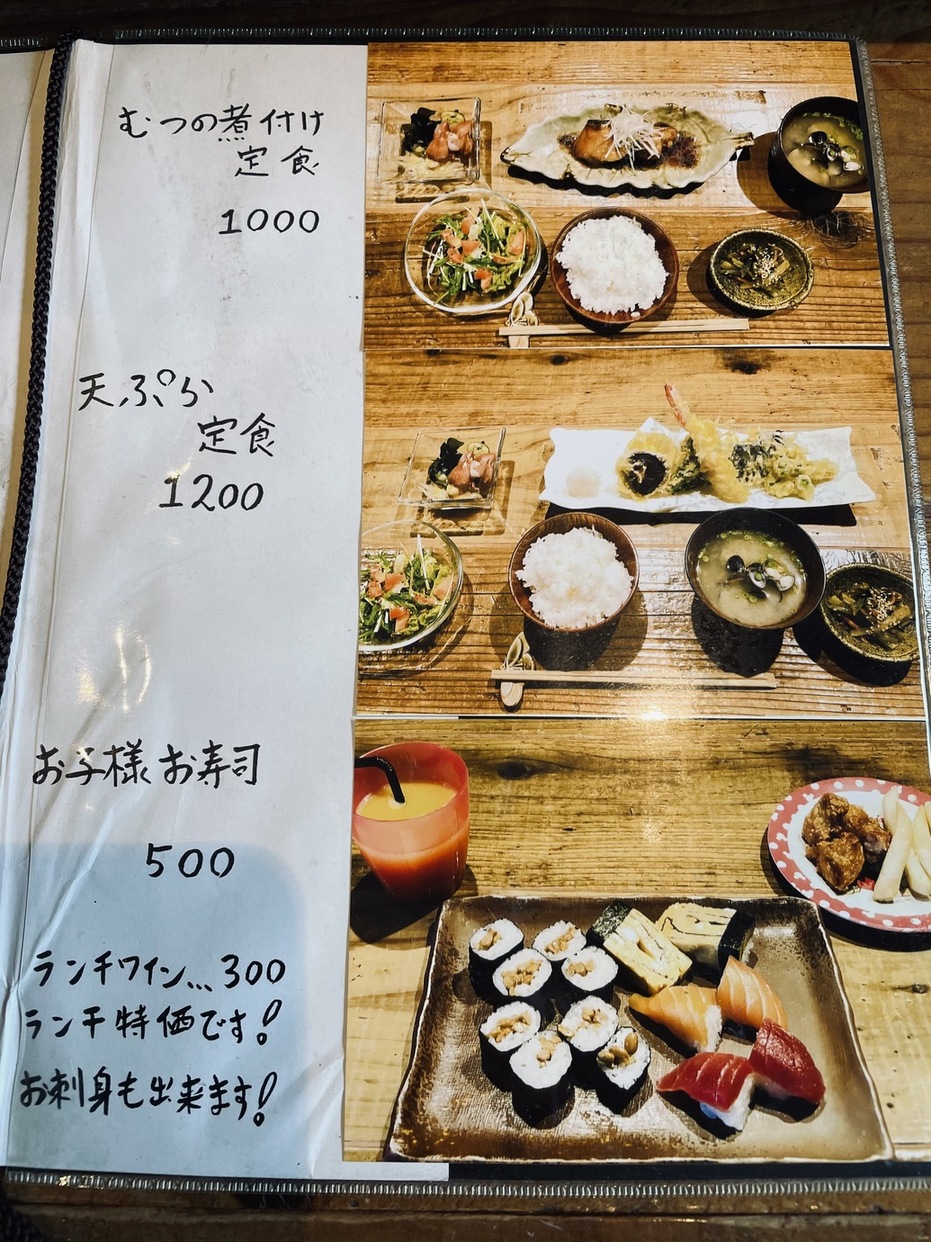 むつの煮付け
定食
1000
天ぷら
定食
1200
お子様お寿司
500
ランチワイン...300
ランチ特価です!
お刺身も出来ます!